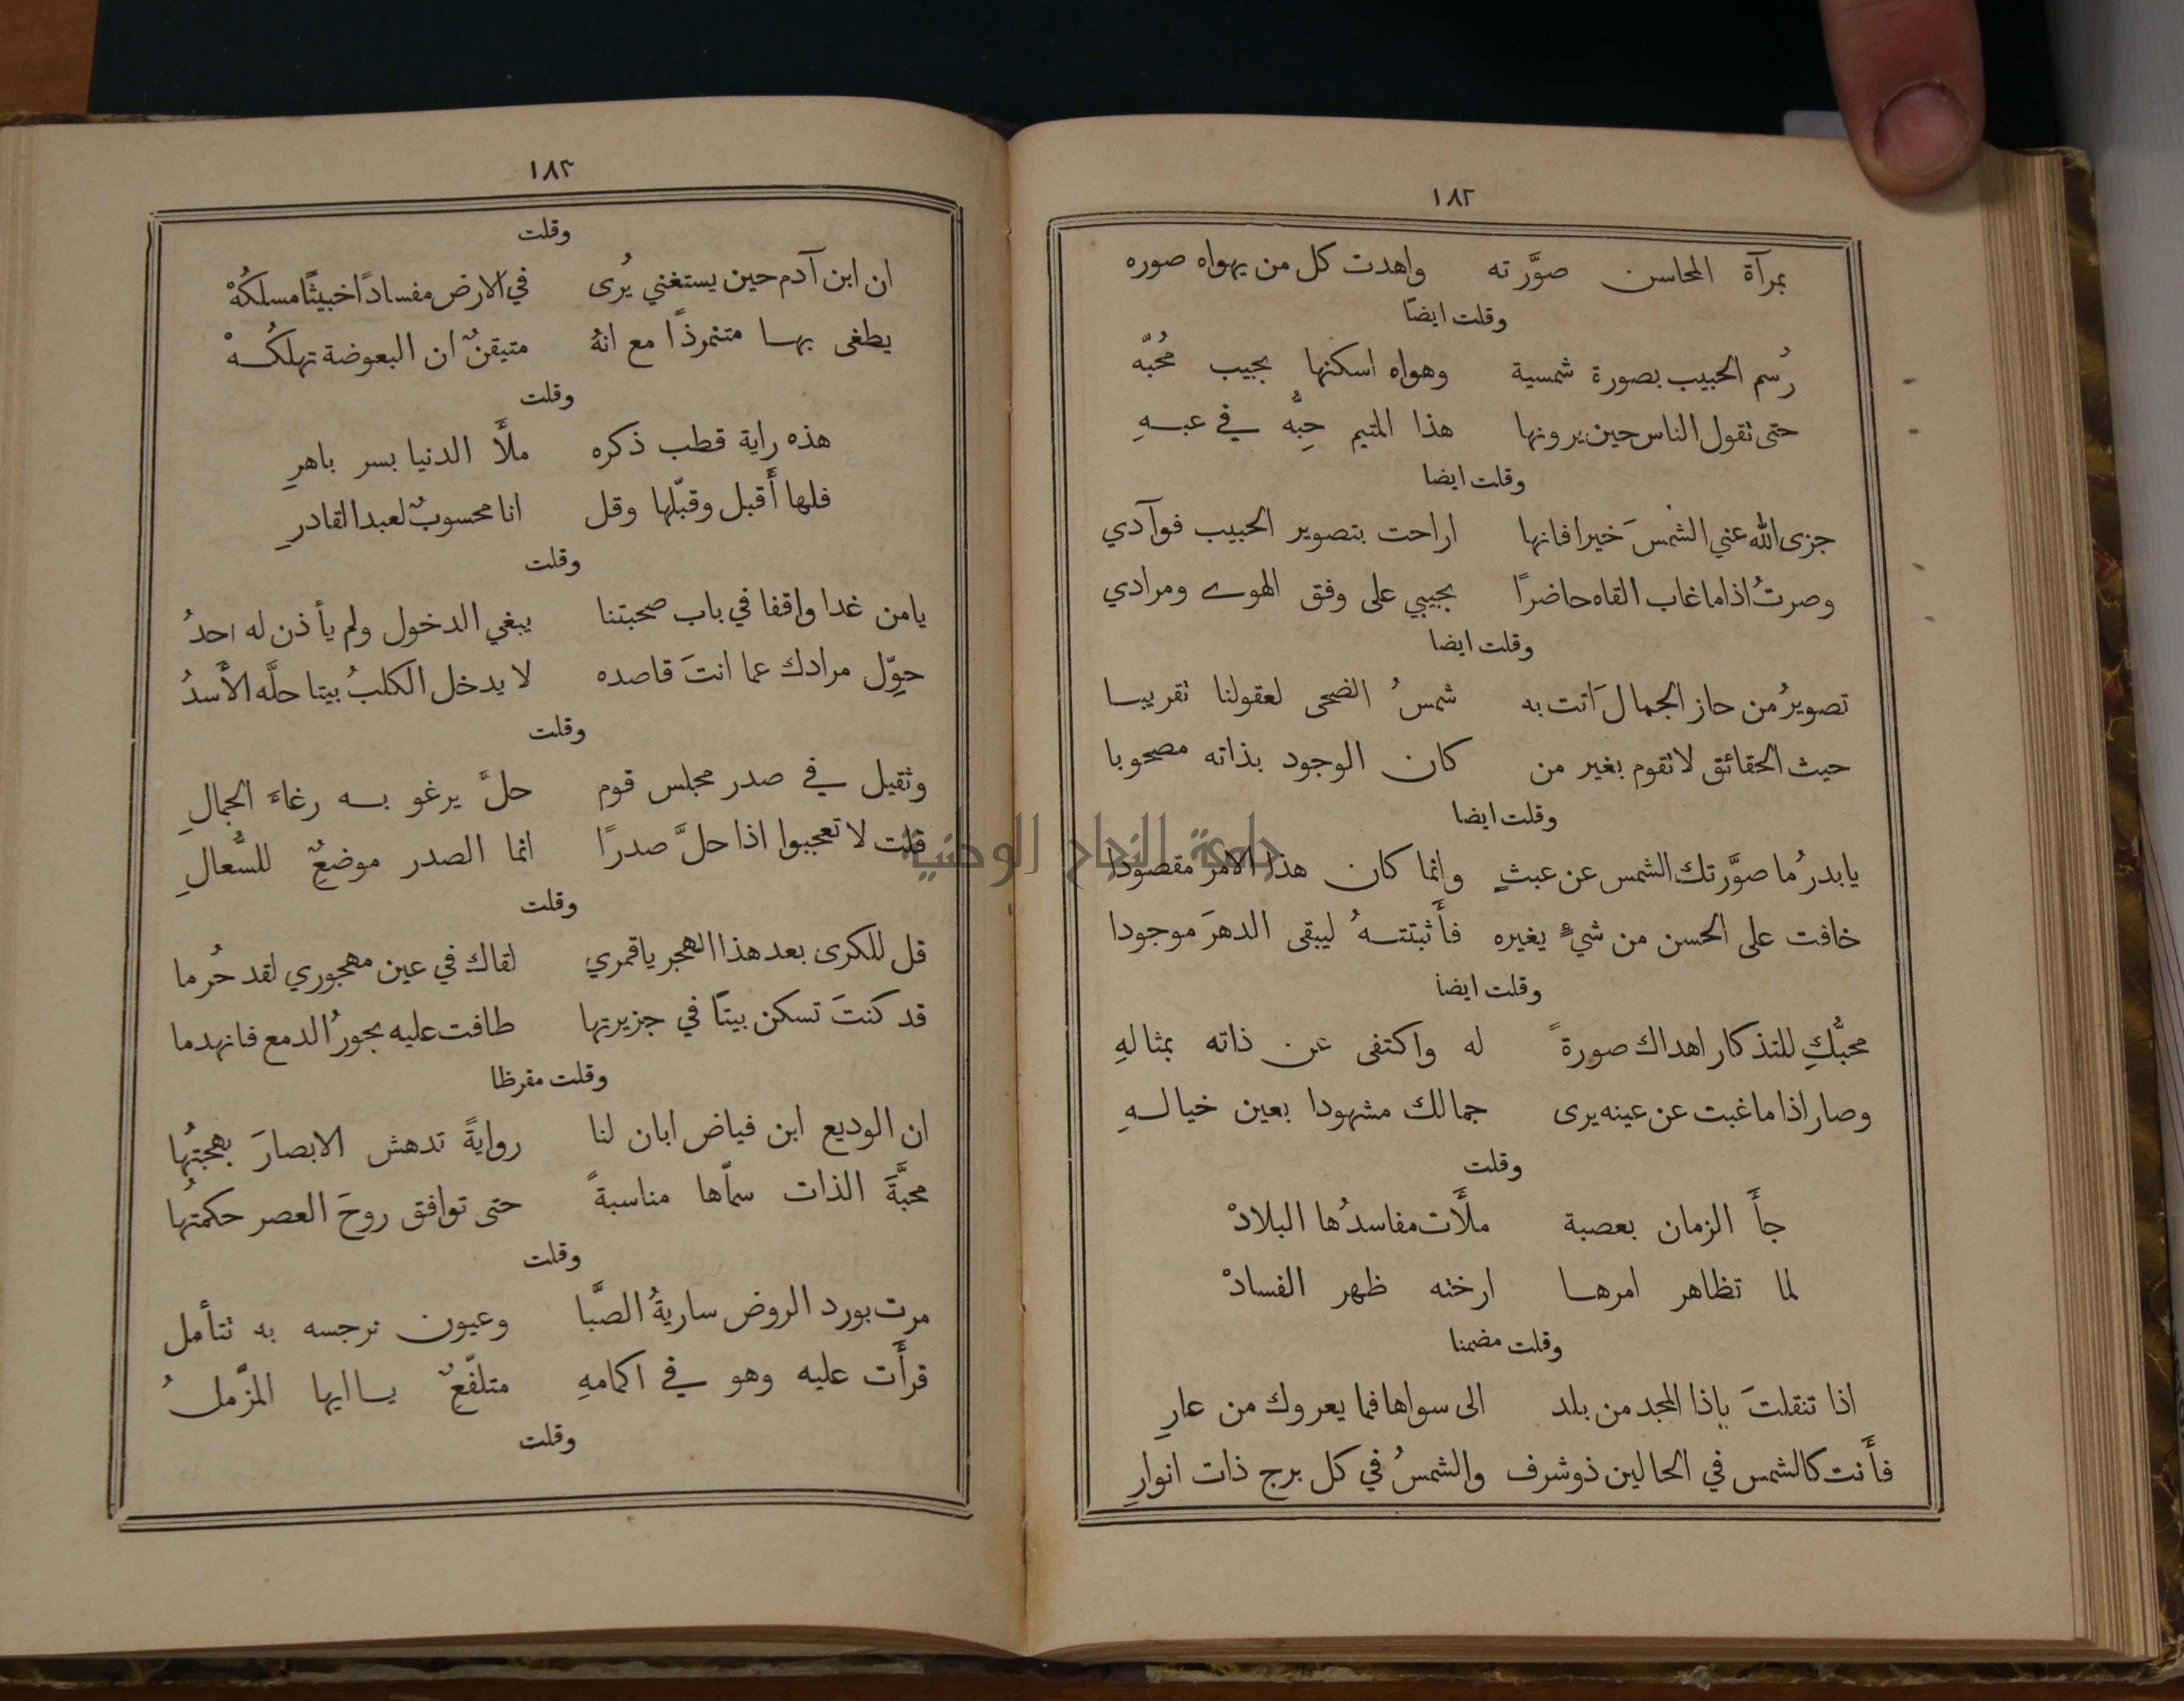 ١٨٢
بمرآة المحاسن صوَّرته واهدت كل من يهواه صوره
وقلت ايضًا
رُسم الحبيب بصورة شمسية وهواه اسكنها بجيب مُحبّه
حتى تقول الناس حين يرونها هذا المتيم حِبُّه في عبهِ
وقلت ايضا
جزى الله عني الشمسَ خيرا فانها اراحت بتصوير الحبيب فوآدي
وصرتُ اذا ما غاب القاه حاضرًا بجيبي على وفق الهوے ومرادي
وقلت ايضا
تصويرُ من حاز الجمالَ اتت به شمسُ الضحى لعقولنا تقريبا
حيث الحقائق لا تقوم بغير من كان الوجود بذاته مصحوبا
وقلت ايضا
يا بدرُ ما صوَّرتك الشمس عن عبثٍ وانما كان هذا الامر مقصودا
خافت على الحسن من شيءٍ يغيره فأَثبتتهُ ليبقى الدهرَ موجودا
وقلت ايضا
محبُّكِ للتذكار اهداك صورةً له واكتفى عن ذاته بمثالهِ
وصار اذا ما غبت عن عينه يرى جمالك مشهودا بعين خيالهِ
وقلت
جأَ الزمان بعصبة ملأَت مفاسدُها البلادْ
لما تظاهر امرها ارخته ظهر الفسادْ
وقلت مضمنا
اذا تنقلتَ ياذا المجد من بلد الى سواها فما يعروك من عارِ
فأَنت كالشمس في الحالين ذو شرف والشمسُ في كل برج ذات انوارِ
١٨٣
وقلت
ان ابن آدم حين يستغني يُرى في الارض مفسادًا خبيثًا مسلكُهْ
يطغى بها متنمرذًا مع انهُ متيقنٌ ان البعوضة تهلكُهْ
وقلت
هذه راية قطب ذكره ملأَ الدنيا بسر باهرِ
فلها أَقبل وقبّلها وقل انا محسوبٌ لعبد القادرِ
وقلت
يا من غدا واقفا في باب صحبتنا يبغي الدخول ولم يأذن له احدُ
حوِّل مرادك عما انتَ قاصده لا يدخل الكلبُ بيتا حلَّه الأَسدُ
وقلت
وثقيل في صدر مجلس قوم حلَّ يرغو به رغاءَ الجمالِ
قلت لا تعجبوا اذا حلَّ صدرًا انما الصدر موضعٌ للسُّعالِ
وقلت
قل للكرى بعد هذا الهجر يا قمري لقاك في عين مهجوري لقد حُرما
قد كنتَ تسكن بيتًا في جزيرتها طافت عليه بحورُ الدمع فانهدما
وقلت مقرظا
ان الوديع ابن فياض ابان لنا روايةً تدهش الابصارَ بهجتُها
محبَّةَ الذات سمّاها مناسبةً حتى توافق روحَ العصر حكمتُها
وقلت
مرت بورد الروض ساريةُ الصَّبا وعيون نرجسه به تتأمل
قرأَت عليه وهو في اكمامهِ متلفّعٌ يا ايها المزّملُ
وقلت
جامعة النجاح الوطنية